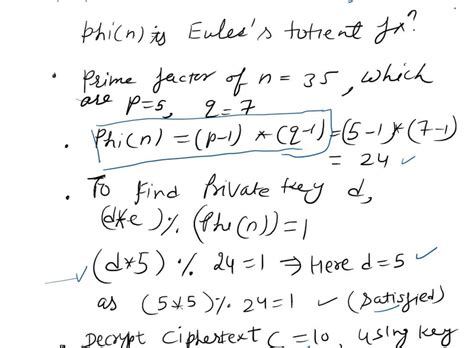 Phi(n) is Euler's totient fx?
• Prime factor of n = 35, which
are p=5, q=7
• Phi(n) = (p-1) * (q-1) = (5-1)*(7-1)
= 24 ✓
• To find Private key d,
(d*e) % (Phi(n)) = 1
✓ (d*5) % 24 = 1 ⇒ Here d = 5 ✓
as (5*5) % 24 = 1 ✓ (satisfied)
• Decrypt Ciphertext C = 10, using key